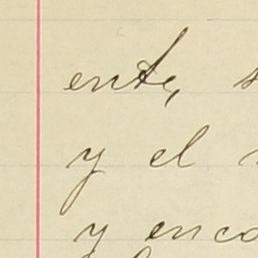 ente,
y el
y enco